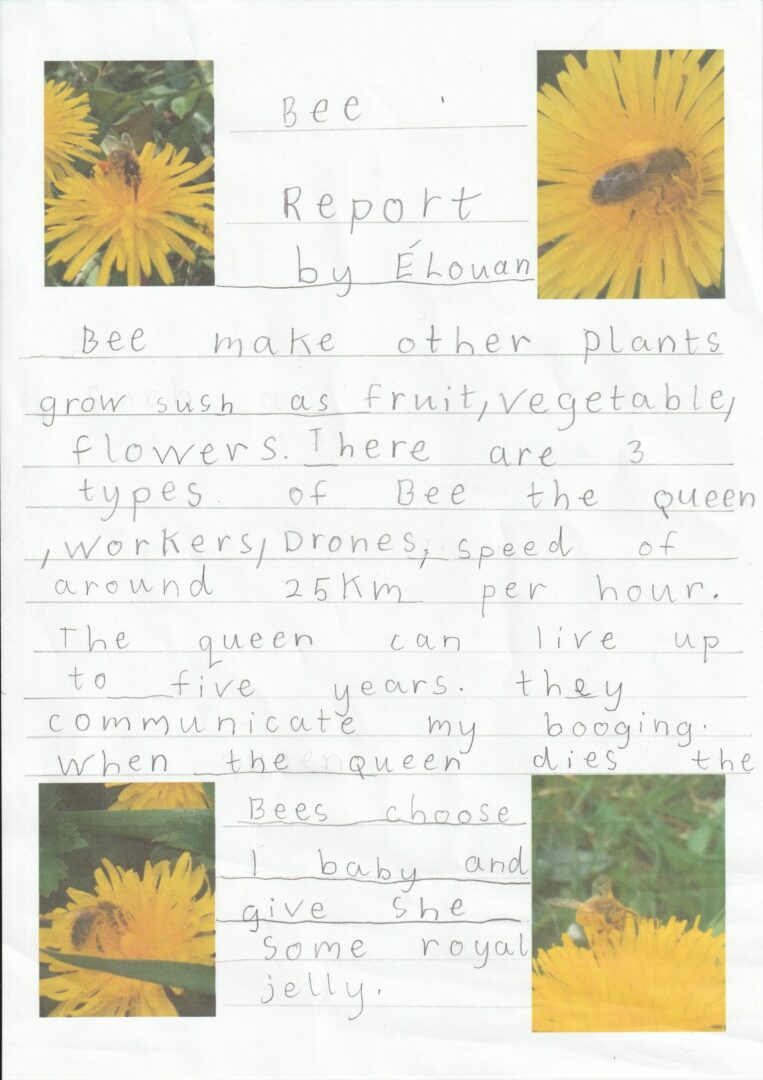 Bee
Report
by Élouan
Bee make other plants
grow sush as fruit, vegetable,
flowers. There are 3
types of Bee the queen
, workers, Drones, speed of
around 25Km per hour.
The queen can live up
to five years. they
communicate my booging.
When the queen dies the
Bees choose
1 baby and
give she
some royal
jelly.